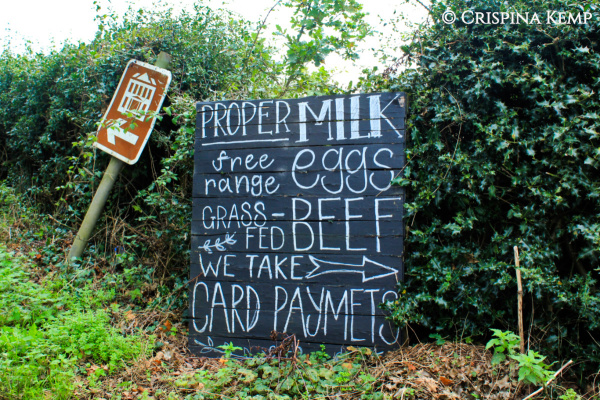 © CRISPINA KEMP
PROPER MILK
free range eggs
GRASS-FED BEEF
WE TAKE
CARD PAYMETS